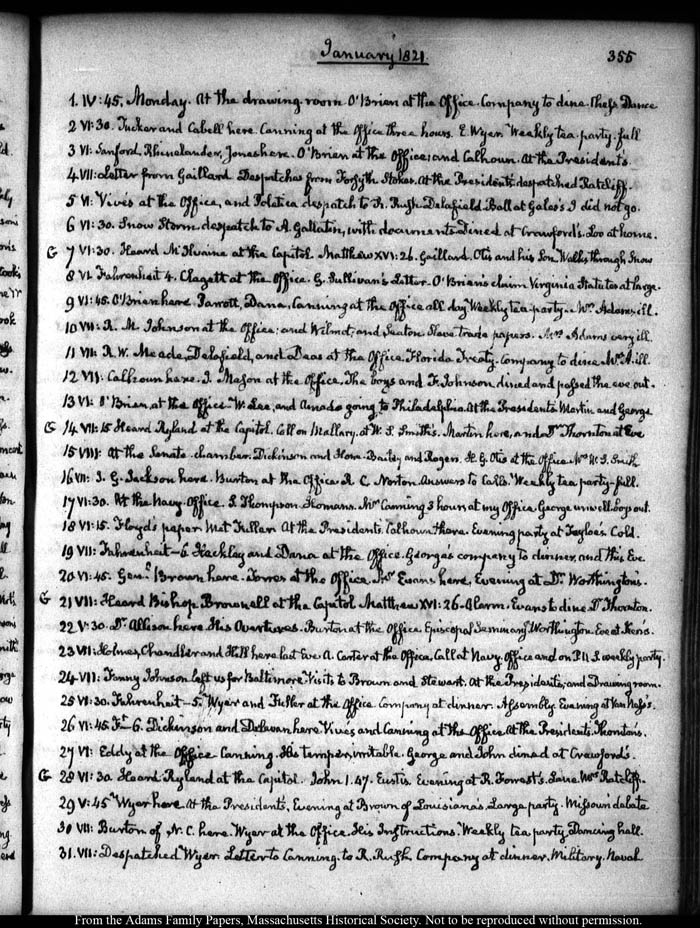 January 1821.
355
1. IV:45. Monday. At the drawing room O'Brien at the Office. Company to dine. Chess Dance
2 VI:30. Tucker and Cabell here. Canning at the Office three hours. E. Wyer. Weekly tea party. full
3 VI: Sanford, Rhinelander, Jones here. O'Brien at the Office; and Calhoun. At the Presidents.
4. VII: Letter from Gaillard. Despatches from Forsyth Stokes. At the Presidents despatched Ratcliff.
5 VI: Vives at the Office, and despatch to R. Rush. Delafield. Ball at Gales's I did not go.
6 VI:30. Snow Storm. despatch to A. Gallatin, with documents Dined at Crawford's. Loo at home.
G 7 VI:30. Heard McIlvaine at the Capitol. Matthew XVI:26. Gaillard. Otis and his Son. Walk through Snow
8 VI. Fahrenheit 4. Clagett at the Office. G. Sullivan's Letter. O'Brien's claim Virginia Statutes at large.
9 VI:45. O'Brien here. Parrott, Dana, Canning at the Office all day. Weekly tea party. Mrs Adams, ill.
10 VII: R. M. Johnson at the Office; and Wilmot, and Seaton Slave trade papers. Mrs Adams very ill.
11 VII: R. W. Meade, Delafield, and Deas at the Office. Florida Treaty. Company to dine Mrs A. ill.
12 VII: Calhoun here. J. Mason at the Office. The boys and F. Johnson dined and passed the eve out.
13 VI: O'Brien, at the Office. W. Lee, and Amado going to Philadelphia. At the Presidents Martin and George
G 14. VII:15 Heard Ryland at the Capitol. Call on Mallary, at W. S. Smith's. Martin here, and Dr Thornton at Eve
15 VIII: At the Senate chamber. Dickinson and Horn. Bailey and Rogers. H. G. Otis at the Office Mrs W. S. Smith
16 VII: J. G. Jackson here. Burton at the Office R. C. Norton. Answers to Calls. Weekly tea party full.
17 VI:30. At the Navy Office. S. Thompson. Homans. Mr Canning 3 hours at my Office. George unwell. boys out.
18 VI:15. Floyd's paper. Met Fuller. At the Presidents. Calhoun there. Evening party at Tayloe's. Cold.
19 VII: Fahrenheit—6. Hackley and Dana at the Office. George's company to dinner, and this Eve
20 VI:45. Genl Brown here. Torres at the Office, Evans here, Evening at Dr Worthington's.
G 21 VII: Heard Bishop Brownell at the Capitol Matthew XVI:26. Alarm. Evans to dine Dr Thornton.
22 V:30. Dr Allison here. His Overtures. Burton at the Office. Episcopal Seminary. Worthington. Eve at
23 VII: Holmes, Chandler and Hill here last Eve. A. Carter at the Office. Call at Navy Office and on weekly party.
24. VII: Fanny Johnson left us for Baltimore. Visits to Brown and Stewart. At the Presidents; and Drawing room.
25 VI:30. Fahrenheit—5. Wyer and Fuller at the Office. Company at dinner. Assembly. Evening at Van Ness's.
26 VI:45 Ft—6. Dickinson and Delavan here. Vives and Canning at the Office. At the Presidents. Thornton's.
27 VI: Eddy at the Office Canning. His temper, irritable. George and John dined at Crawford's.
G 28 VI:30 Heard Ryland at the Capitol. John 1.47. Eustis. Evening at R. Forrest's. Lane. Mrs Ratcliff.
29 V:45 Wyer here. At the Presidents, Evening at Brown of Louisiana's. Large party. Missouri debate
30 VII: Burton of N. C. here. Wyer at the Office. His Instructions. Weekly tea party. Dancing hall.
31. VII: Despatched Wyer. Letter to Canning. to R. Rush. Company at dinner. Military. Naval
From the Adams Family Papers, Massachusetts Historical Society. Not to be reproduced without permission.